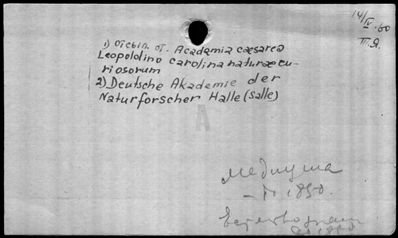 14/IV-60
П.Я.
1) отсыл. от. Academia caesarea
Leopoldino carolina naturae cu-
riosorum
2) Deutsche Akademie der
Naturforscher Halle (Salle)
медицина
1850.